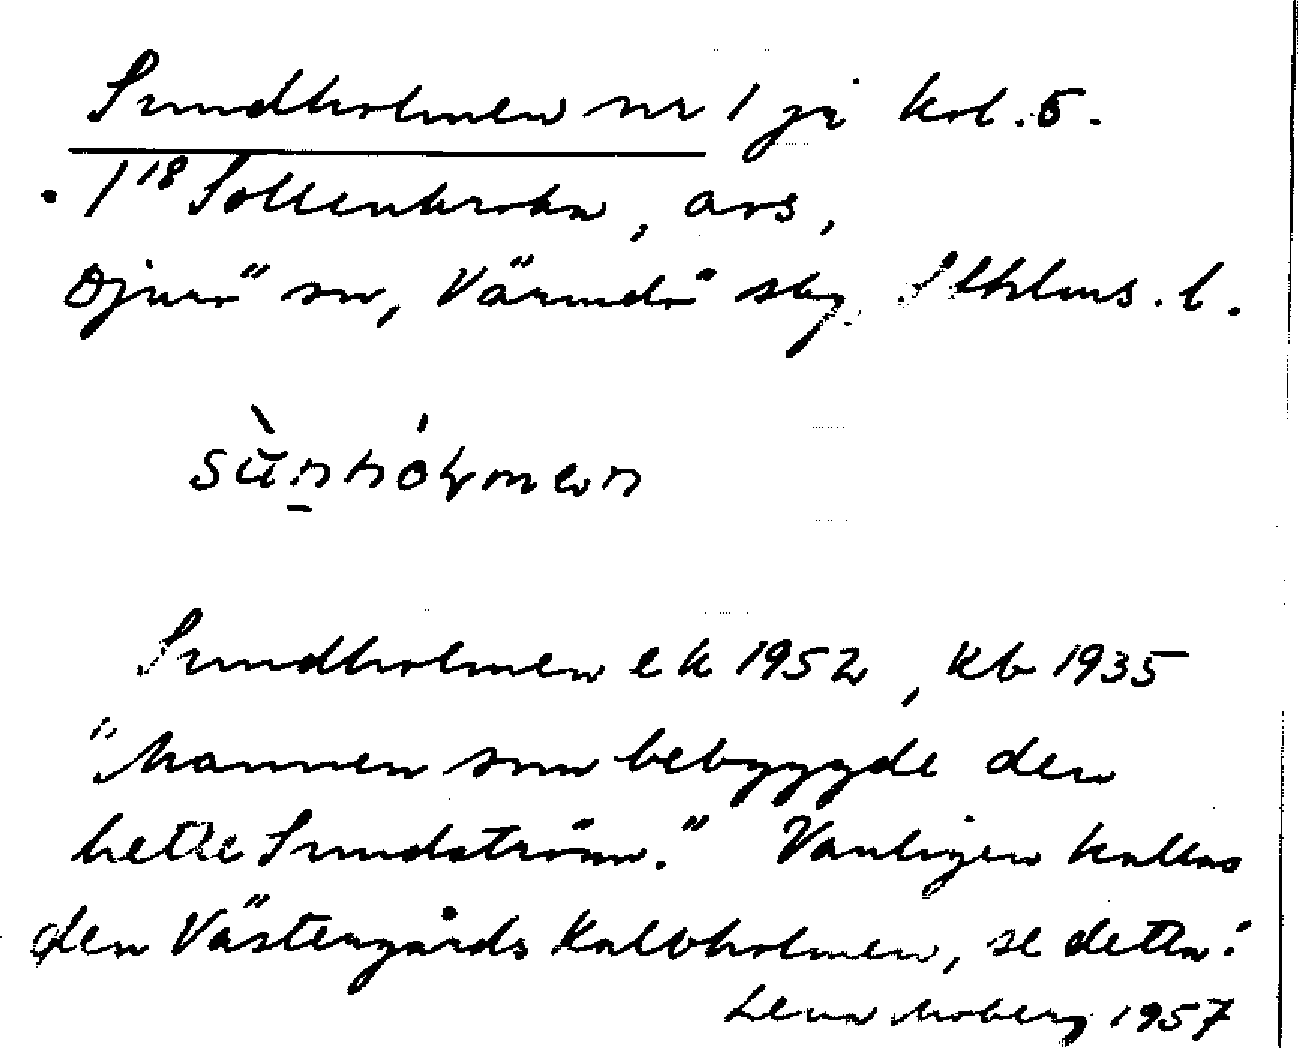 Sundholmen nr 1 på kol. 5.
. 1¹⁸ Sollenkroka, avs,
Djurö sn, Värmdö skg. Sthlms. l.
sùnhólmen
Sundholmen ek 1952, Kb 1935
"Mannen som bebyggde den
hette Sundström." Vanligen kallas
den Västergårds Kalvholmen, se detta!
Lena Moberg 1957